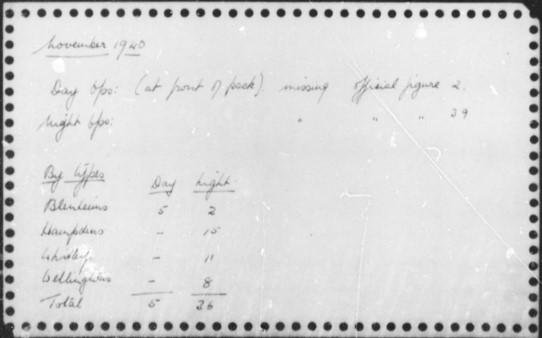 November 1940
Day Ops: (at front of pack). missing official figure 2.
Night Ops: " " " 29
By types
Day Night
Blenheims 5 2
Hampdens - 15
Whitleys - 11
Wellingtons - 8
Total 5 36